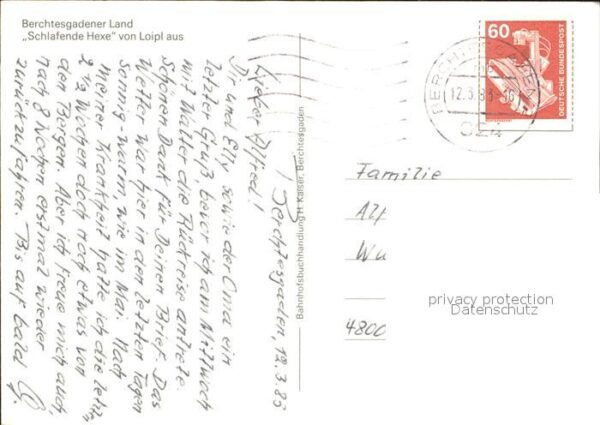 Berchtesgadener Land
„Schlafende Hexe“ von Loipl aus
Berchtesgaden, 12.3.83
Lieber Alfred!
Dir und Elly sowie der Oma ein
letzter Gruß bevor ich am Mittwoch
mit Walter die Rückreise antrete.
Schönen Dank für Deinen Brief. Das
Wetter war hier in den letzten Tagen
sonnig-warm, wie im Mai. Nach
meiner Krankheit hatte ich die letzt.
2 ½ Wochen doch noch etwas von
den Bergen. Aber ich freue mich auch,
nach 8 Wochen erstmal wieder
zurückzufahren. Bis auf bald
Bahnhofsbuchhandlung H. Kaiser, Berchtesgaden
60
DEUTSCHE BUNDESPOST
BERCHTESGADEN
12.3.83-16
Familie
Alf
Wu
4800
privacy protection
Datenschutz